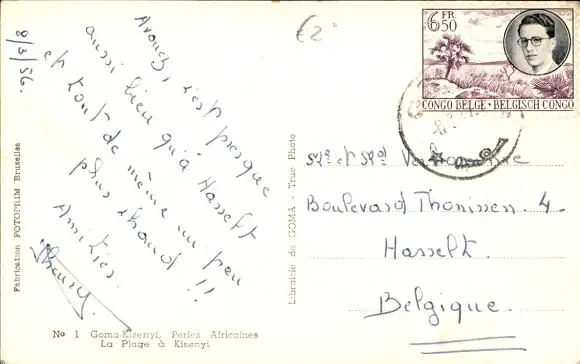 8/3/56.
Avouez, c'est presque
aussi bien qu'à Hasselt
et tout de même un peu
plus chaud !!
Amitiés.
€2
6 FR
50
CONGO BELGE · BELGISCH CONGO
Mr et Mad
Boulevard Thonissen. 4.
Hasselt.
Belgique.
Fabrication FOTOPRIM Bruxelles
Librairie de GOMA - True Photo
No 1 Goma-Kisenyi, Perles Africaines
La Plage à Kisenyi